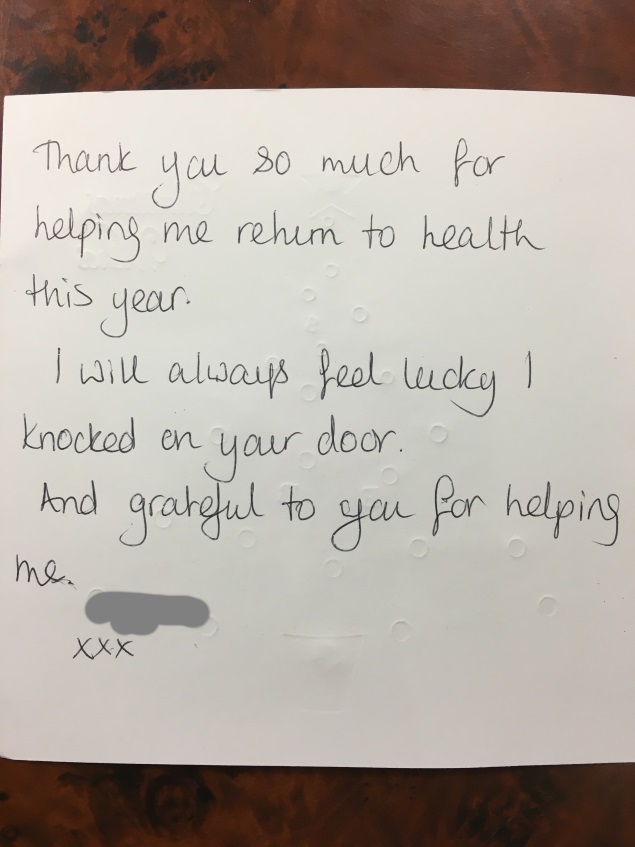 Thank you so much for
helping me return to health
this year.
I will always feel lucky I
knocked on your door.
And grateful to you for helping
me.
xxx